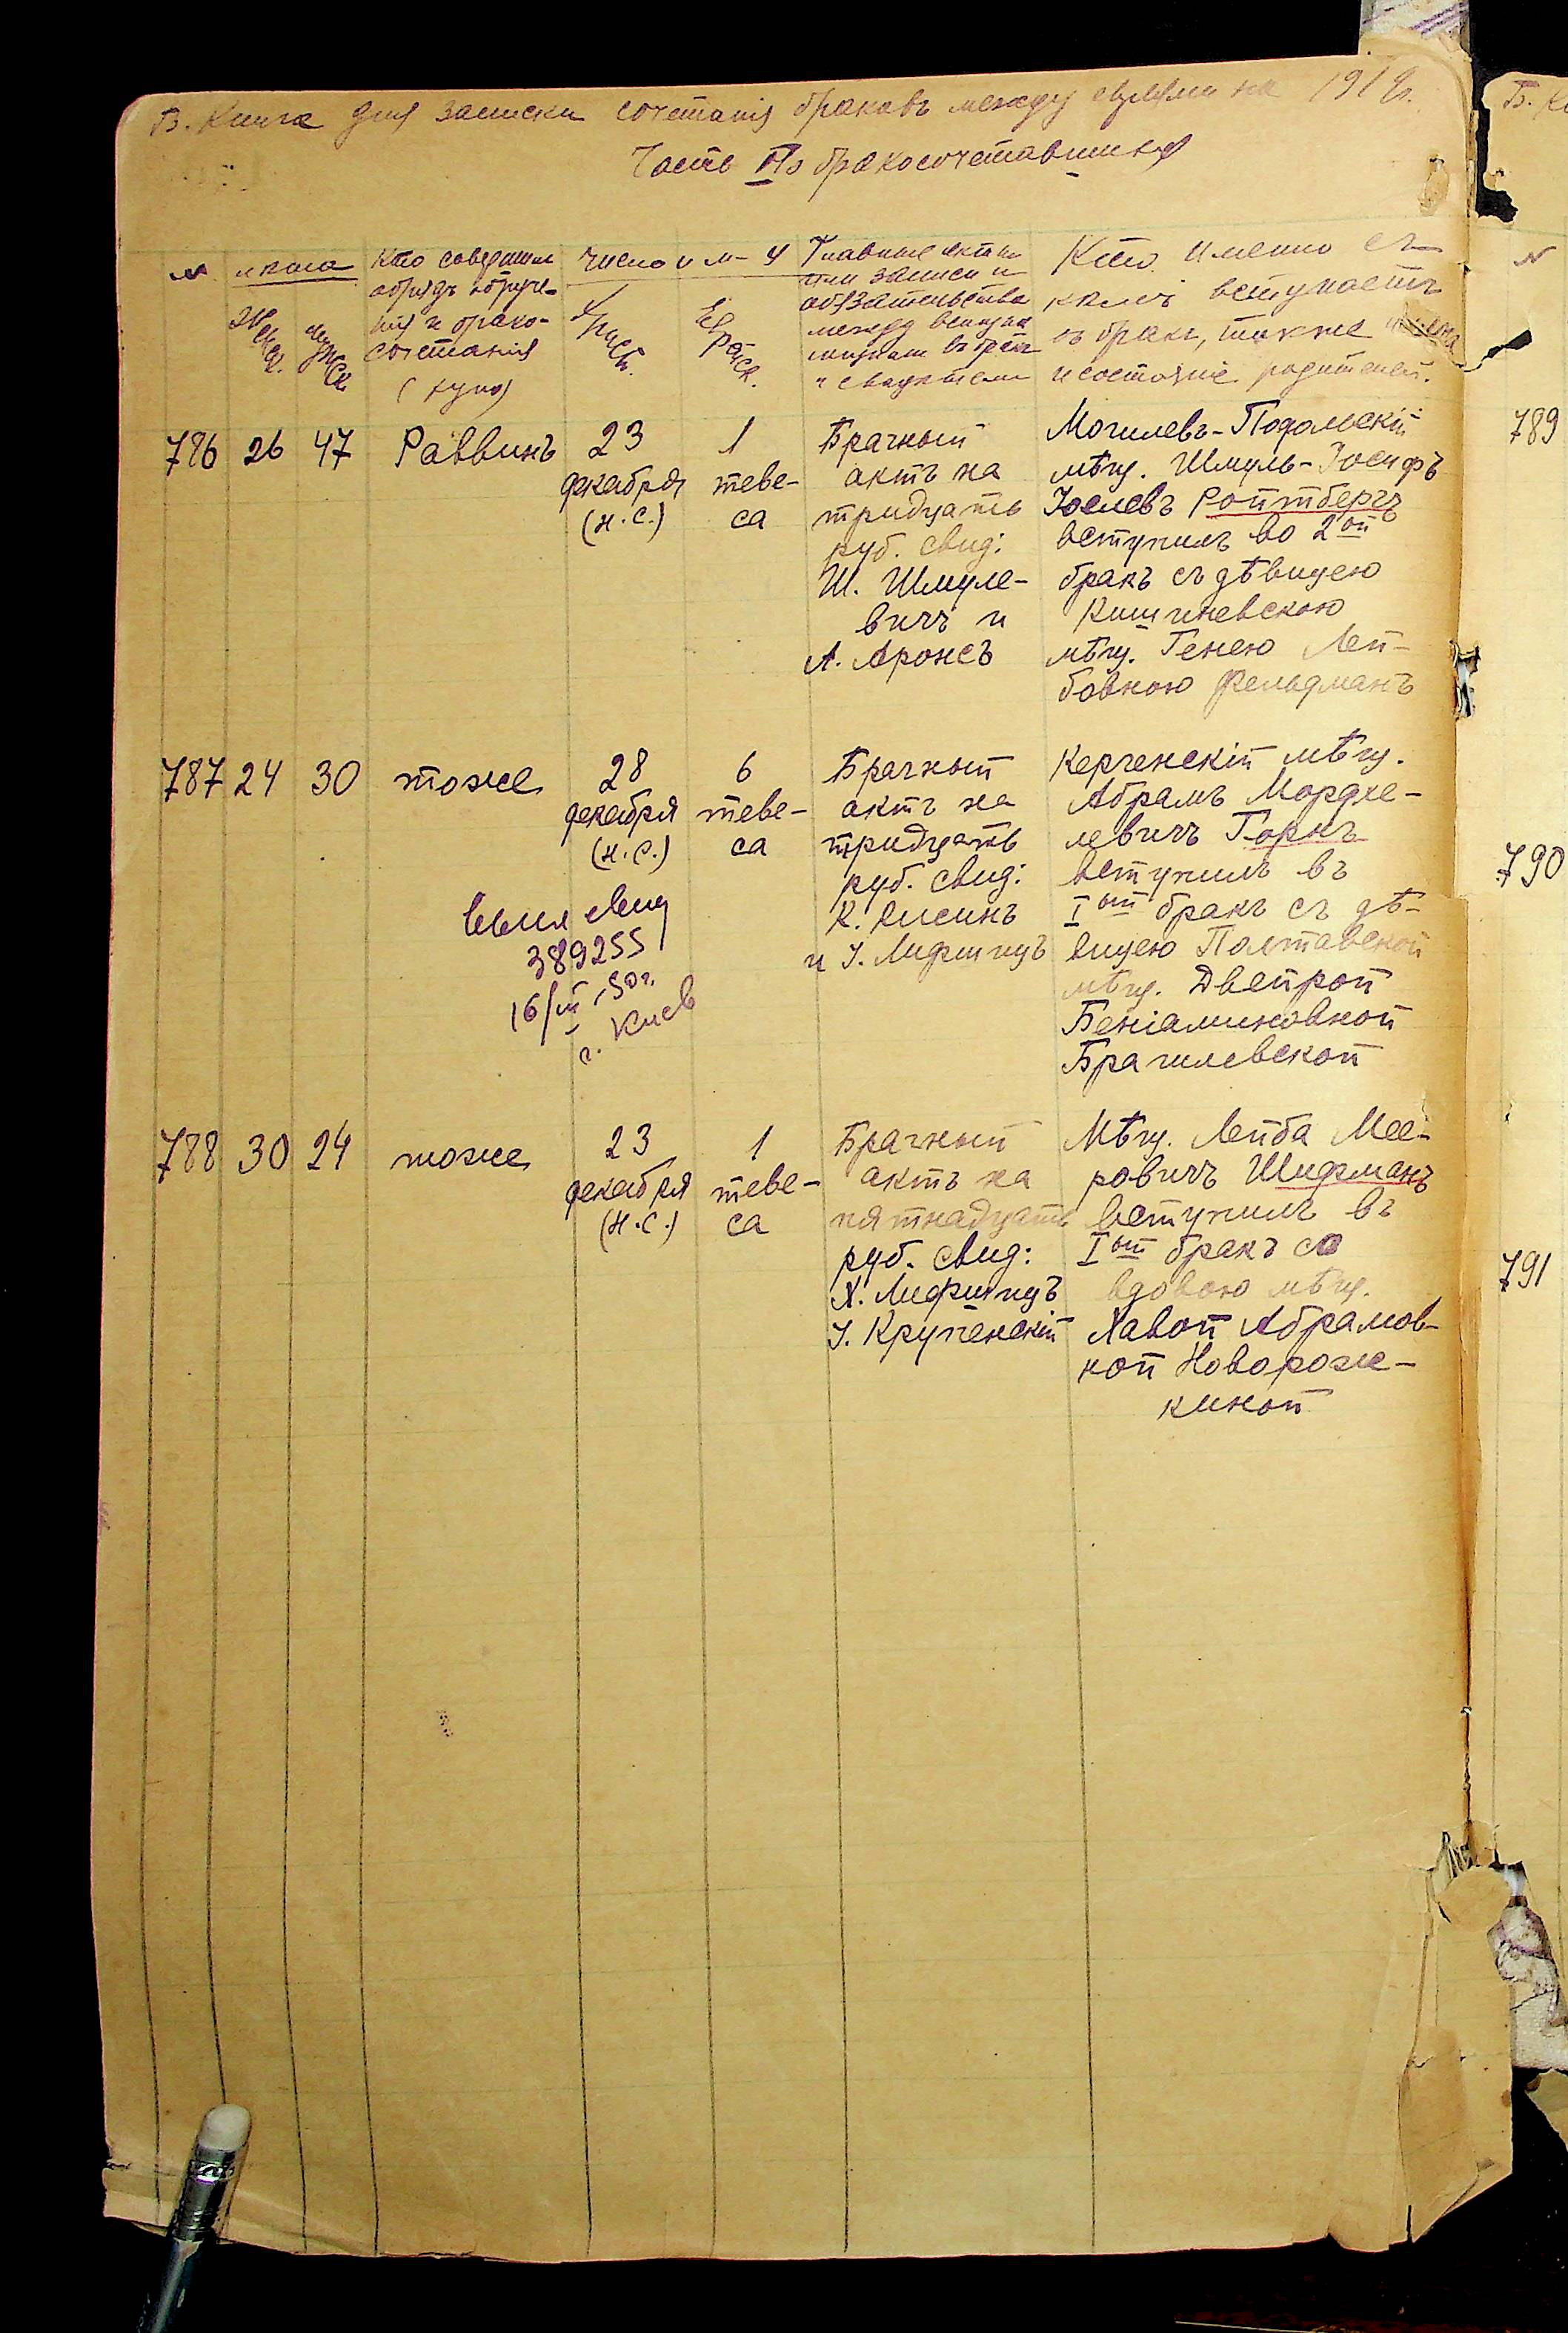 В. Книга для записки сочетанія браковъ между евреями на 1919г.
Часть II о бракосочетавшихся
№ лѣта Кто совершалъ обрядъ обруче-
нія и брако-
сочетанія
(хупо)
Женск. мужск.
Число и м-ц
Христ. Еврейск.
Главные акты
или записи и
обязательства
между вступаю
щими въ бракъ
и свидѣтели
Кто именно съ
кѣмъ вступаетъ
въ бракъ, также имена
и состояніе родителей.
786 26 47 Раввинъ
23
декабря
(н.с.)
1
теве-
са
Брачный
актъ на
тридцать
руб. свид:
Ш. Шмуле-
вичъ и
А. Аронсъ
Могилевъ-Подольскій
мѣщ. Шмуль-Іосифъ
Іоелевъ Ройтбергъ
вступилъ во 2ой
бракъ съ дѣвицею
Кишиневскою
мѣщ. Генею Лей-
бовною Фельдманъ
787 24 30 тоже
28
декабря
(н.с.)
6
теве-
са
Брачный
актъ на
тридцать
руб. свид:
К. Лисинъ
и І. Лифшицъ
Керченскій мѣщ.
Абрамъ Мордхе-
левичъ Горнъ
вступилъ въ
Iый бракъ съ дѣ-
вицею Полтавской
мѣщ. Двейрой
Беніаминовной
Брагилевской
свид
389255
16/III-50г.
г. Киев
788 30 24 тоже
23
декабря
(н.с.)
1
теве-
са
Брачный
актъ на
пятнадцать
руб. свид:
Х. Лифшицъ
І. Крупенскій
Мѣщ. Лейба Мее-
ровичъ Шифманъ
вступилъ въ
Iый бракъ со
вдовою мѣщ.
Хавой Абрамов-
ной Новорож-
киной
Б. К
№
789
790
791